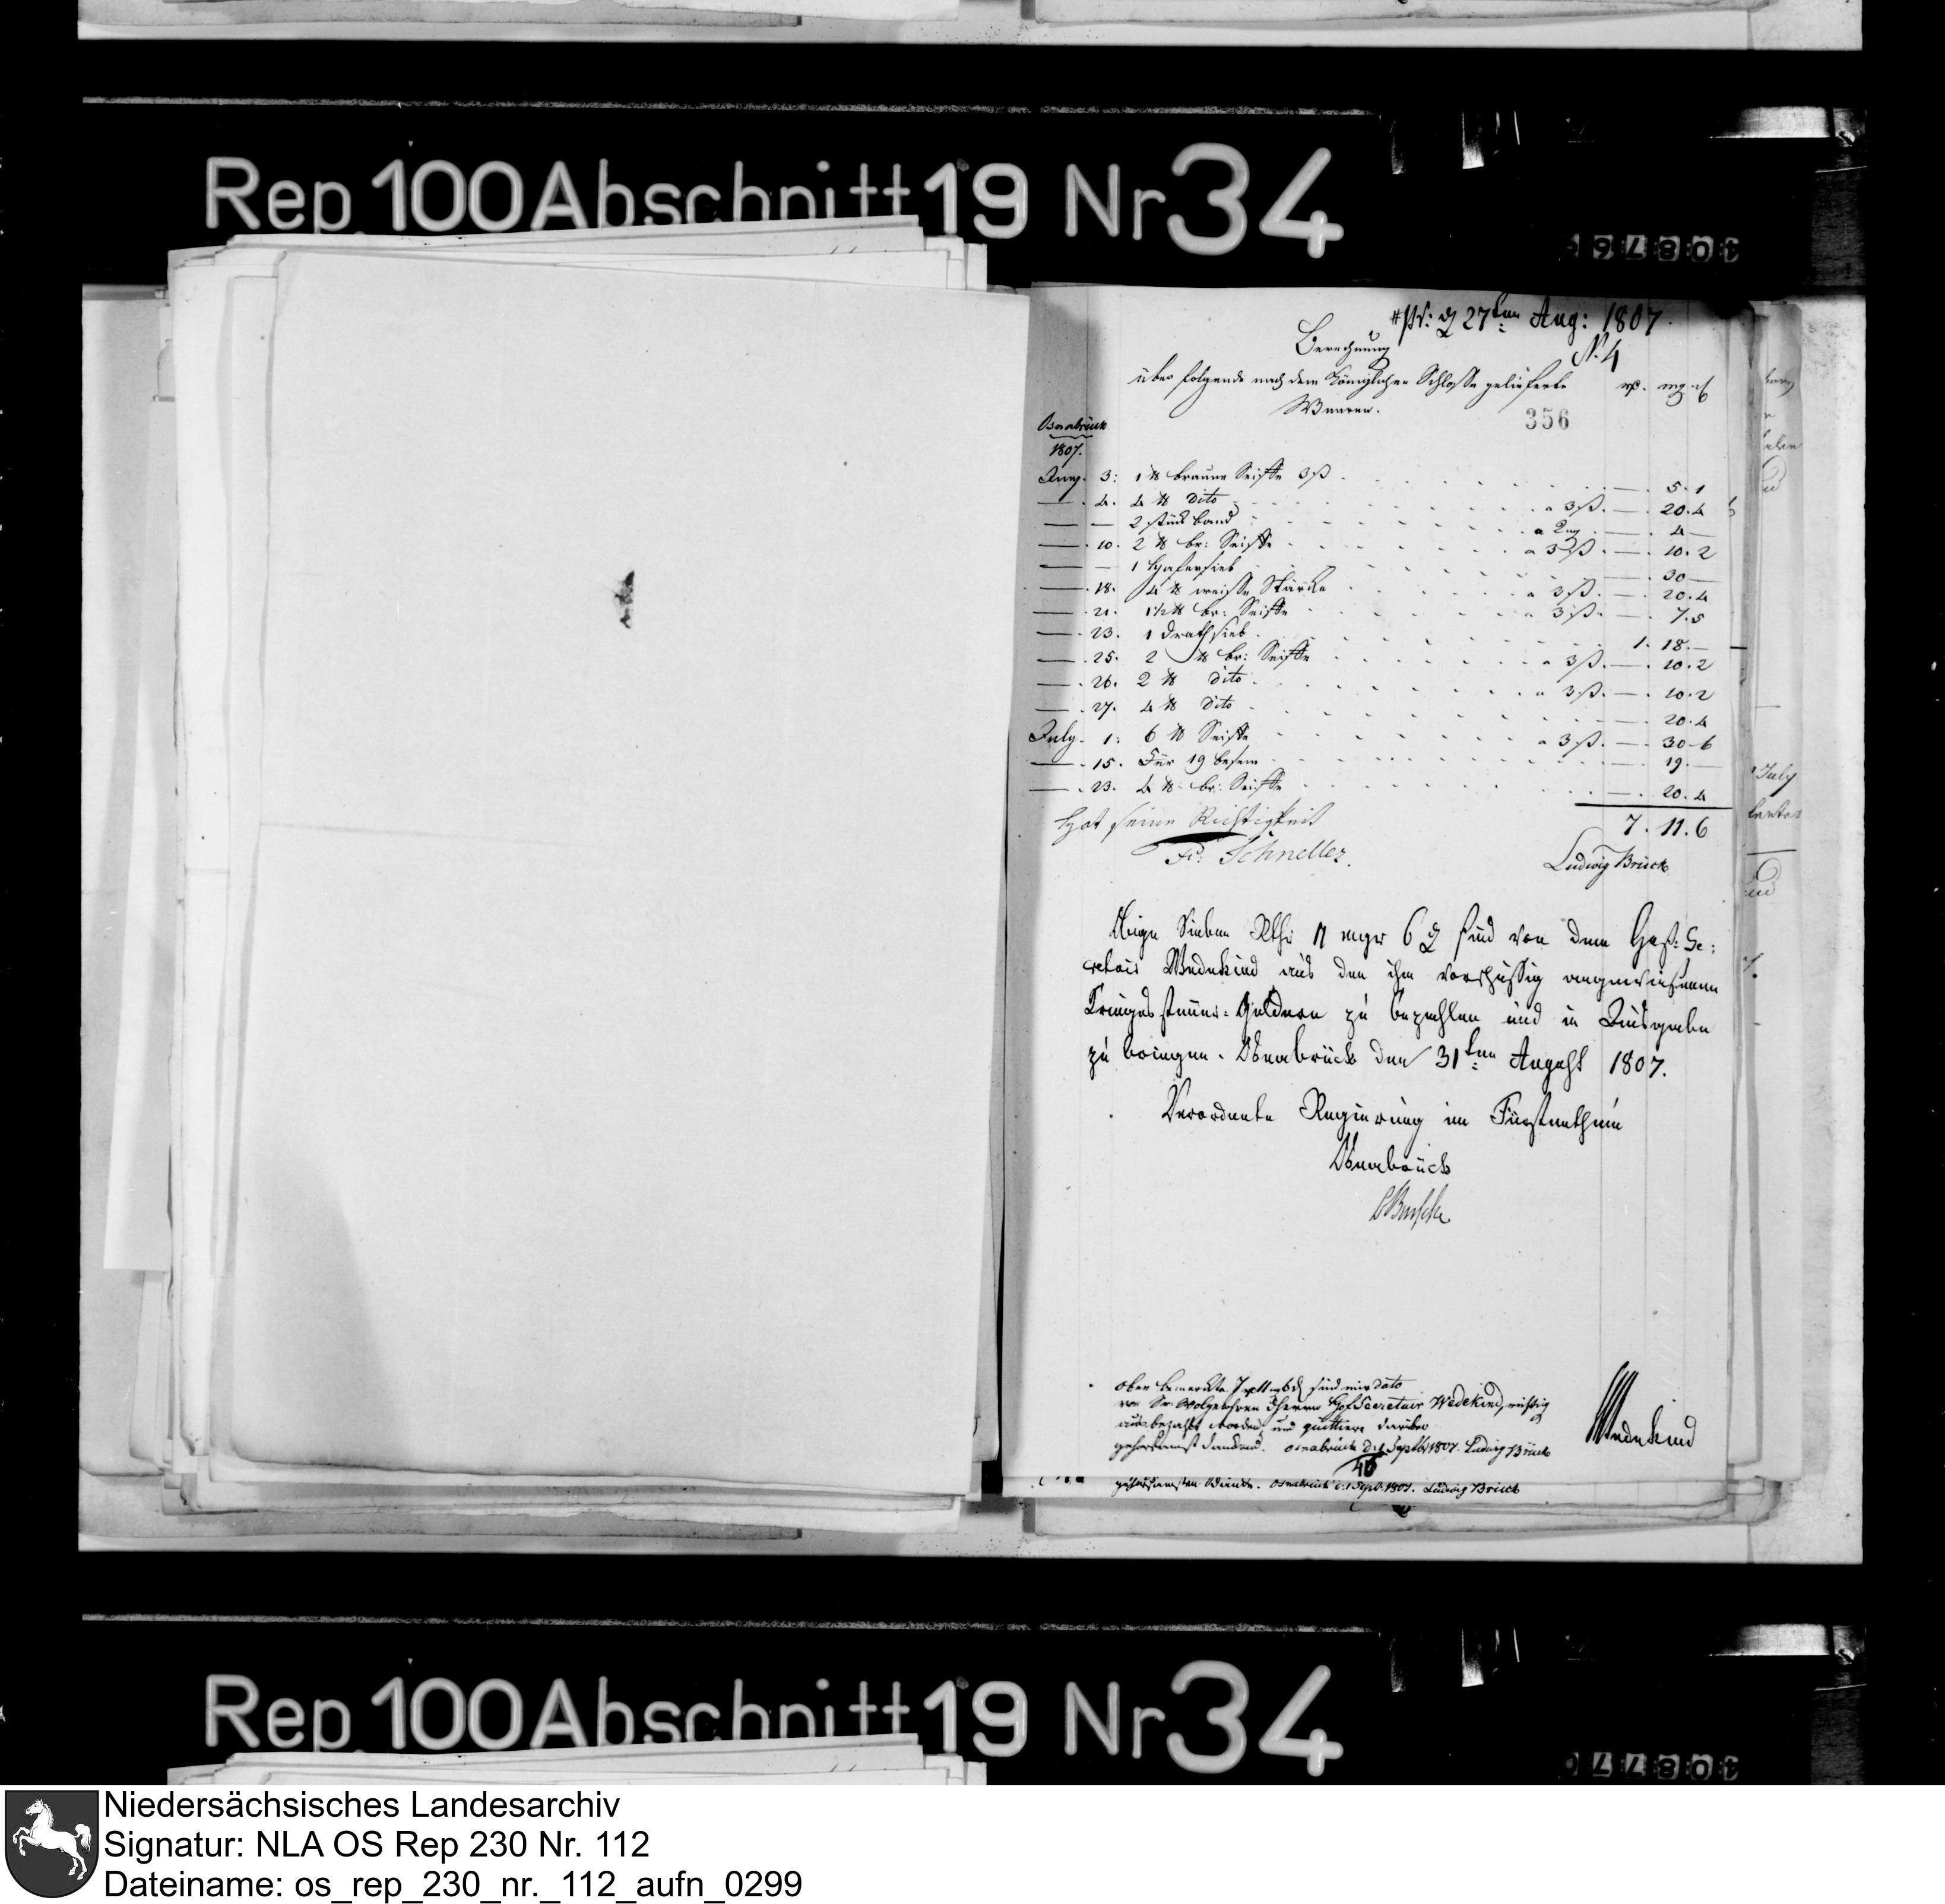 Rep. 100 Abschnitt 19 Nr 34
#ps: d 27ten Aug: 1807.
Berechnung N. 4
über folgende nach dem Königlichen Schlosse gelieferte
Waaren.
356
Osnabrück
1807.
Juny. 3: 1 ℔ braune Seiffe 3ß — 5. 1
— 4. 4 ℔ dito a 3ß. — 20. 4
— — 2 stück band a 2mg — 4 —
— 10. 2 ℔ br: Seiffe a 3ß — 10. 2
— — 1 Hafersieb — 30 —
— 18. 4 ℔ weisse Stärcke a 3ß. — 20. 4
— 21. 1 1/2 ℔ br: Seiffe a 3ß. — 7. 5
— 23. 1 Drathsieb 1. 18. —
— 25. 2 ℔ br: Seiffe a 3ß. — 10. 2
— 26. 2 ℔ dito a 3ß. — 10. 2
— 27. 4 ℔ dito — 20. 4
July. 1: 6 ℔ Seiffe a 3ß. — 30 6
— 15. Für 19 besem — 19. —
— 23. 4 ℔ br: Seiffe — 20. 4
7. 11. 6
Hat seine Richtigkeit
Fr: Schneller.
Ludwig Brück
Obige Sieben Rthr 11 mgr 6 d sind von dem Hof-Se-
cretair Wedekind aus den ihm vorschüssig angewiesenen
Kriegessteuer-Geldern zu bezahlen und in Ausgabe
zu bringen. Osnabrück den 31ten August 1807.
Verordnete Regierung im Fürstenthum
Osnabrück
Busche
oben bemerckte 7 11 6 sind mir dato
von Sr. Wolgebohren Herrn Hof Secretair Wedekind, richtig
ausbezahlt worden, und quittiere darüber
gehorsamst danckend. Osnabrück d. 1 Septb 1807. Ludwig Brück
Wedekind
Osnabrück d. 1 Sept. 1807. Ludwig Brück
Rep. 100 Abschnitt 19 Nr 34
Niedersächsisches Landesarchiv
Signatur: NLA OS Rep 230 Nr. 112
Dateiname: os_rep_230_nr._112_aufn_0299